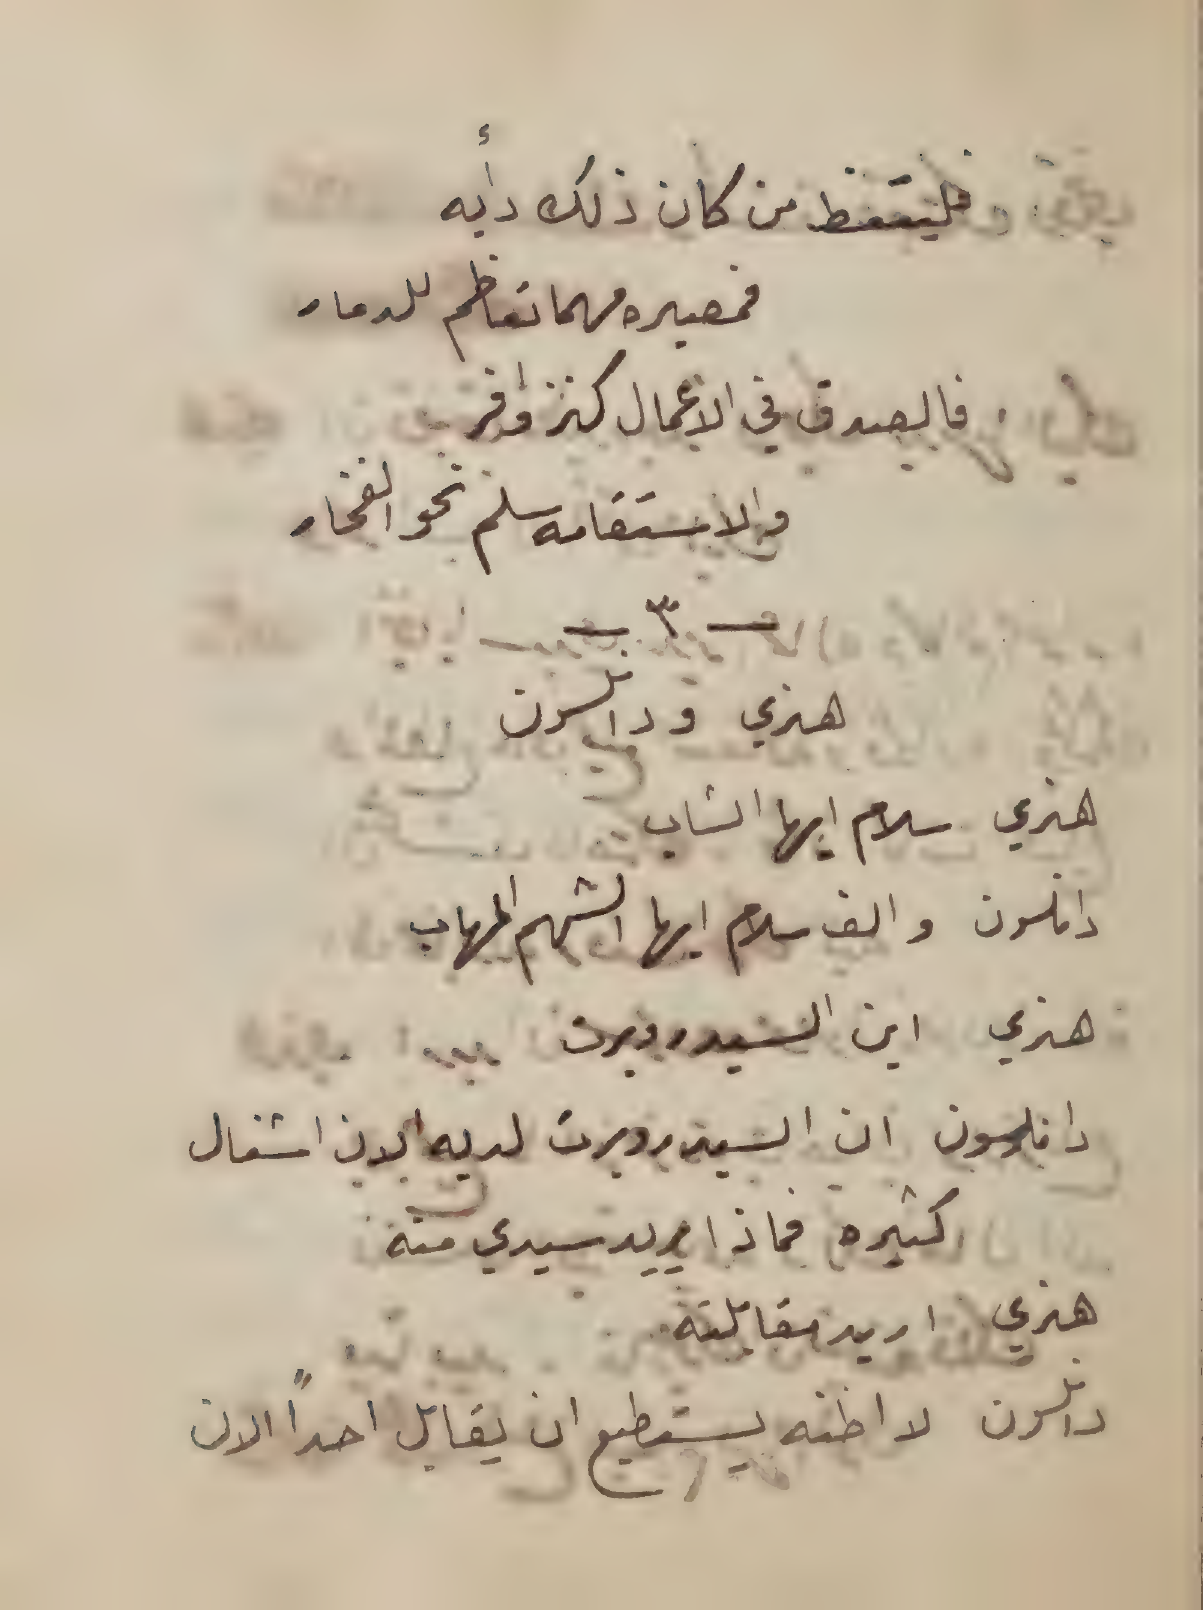 فليتعظ من كان ذلك دأبه
فمصيره مهما تعاظم للدمار
فالصدق في الاعمال كنز وافر
والاستقامه سلم نحو الفخار
— ٣ —
هنري و دانلسون
هنري سلام ايها الشاب
دانلسون والف سلام ايها الشهم المهاب
هنري اين السيد روبرت
دانلسون ان السيد روبرت لديه الان اشغال
كثيره فماذا يريد سيدي منه
هنري اريد مقابلته
دانلسون لا اظنه يستطيع ان يقابل احداً الان